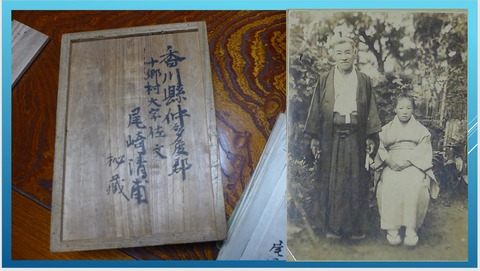 香川縣仲多度郡
十郷村大字佐文
尾崎清甫
秘藏